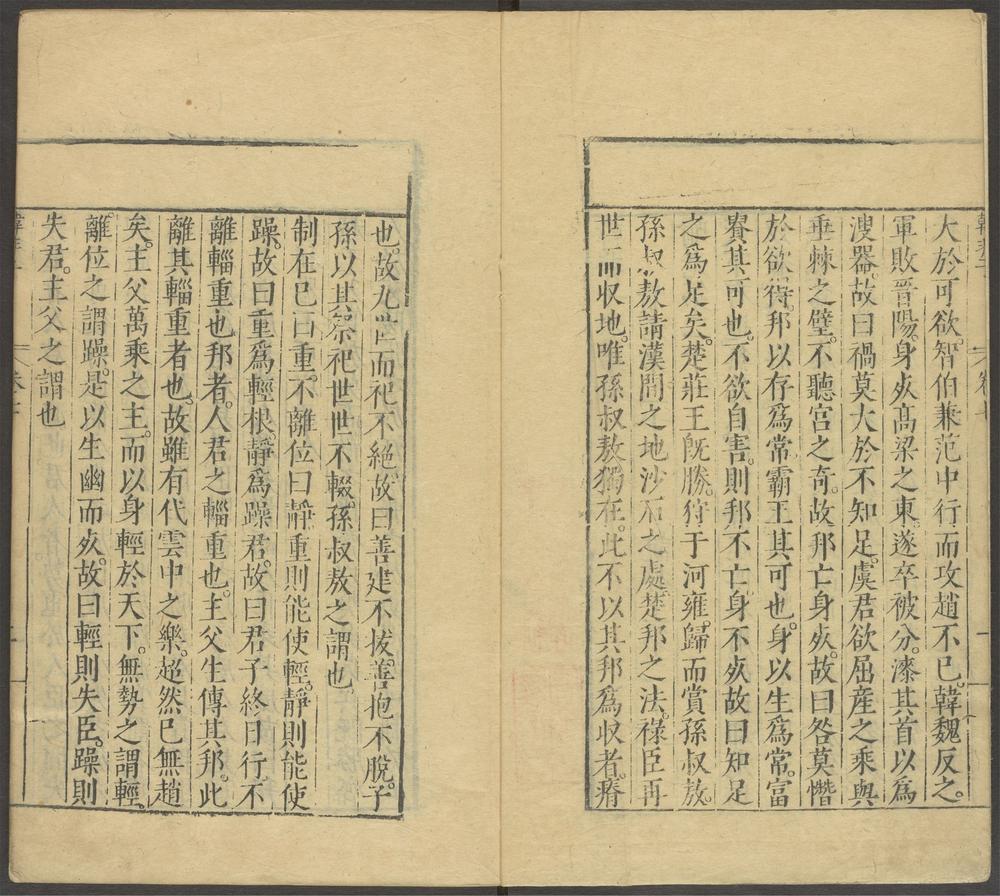 大於可欲智伯兼范中行而攻趙不已韓魏反之
軍敗晉陽身死高梁之東遂卒被分漆其首以爲
溲器故曰禍莫大於不知足虞君欲屈產之乘與
垂棘之璧不聽宮之奇故邦亡身死故曰咎莫憯
於欲得邦以存爲常霸王其可也身以生爲常富
貴其可也不欲自害則邦不亡身不死故曰知足
之爲足矣楚莊王旣勝狩于河雍歸而賞孫叔敖
孫叔敖請漢間之地沙石之處楚邦之法祿臣再
世而收地唯孫叔敖獨在此不以其邦爲收者瘠
也故九世而祀不絕故曰善建不拔善抱不脫子
孫以其祭祀世世不輟孫叔敖之謂也
制在已曰重不離位曰靜重則能使輕靜則能使
躁故曰重爲輕根靜爲躁君故曰君子終日行不
離輜重也邦者人君之輜重也主父生傳其邦此
離其輜重者也故雖有代雲中之樂超然已無趙
矣主父萬乘之主而以身輕於天下無勢之謂輕
離位之謂躁是以生幽而死故曰輕則失臣躁則
失君主父之謂也